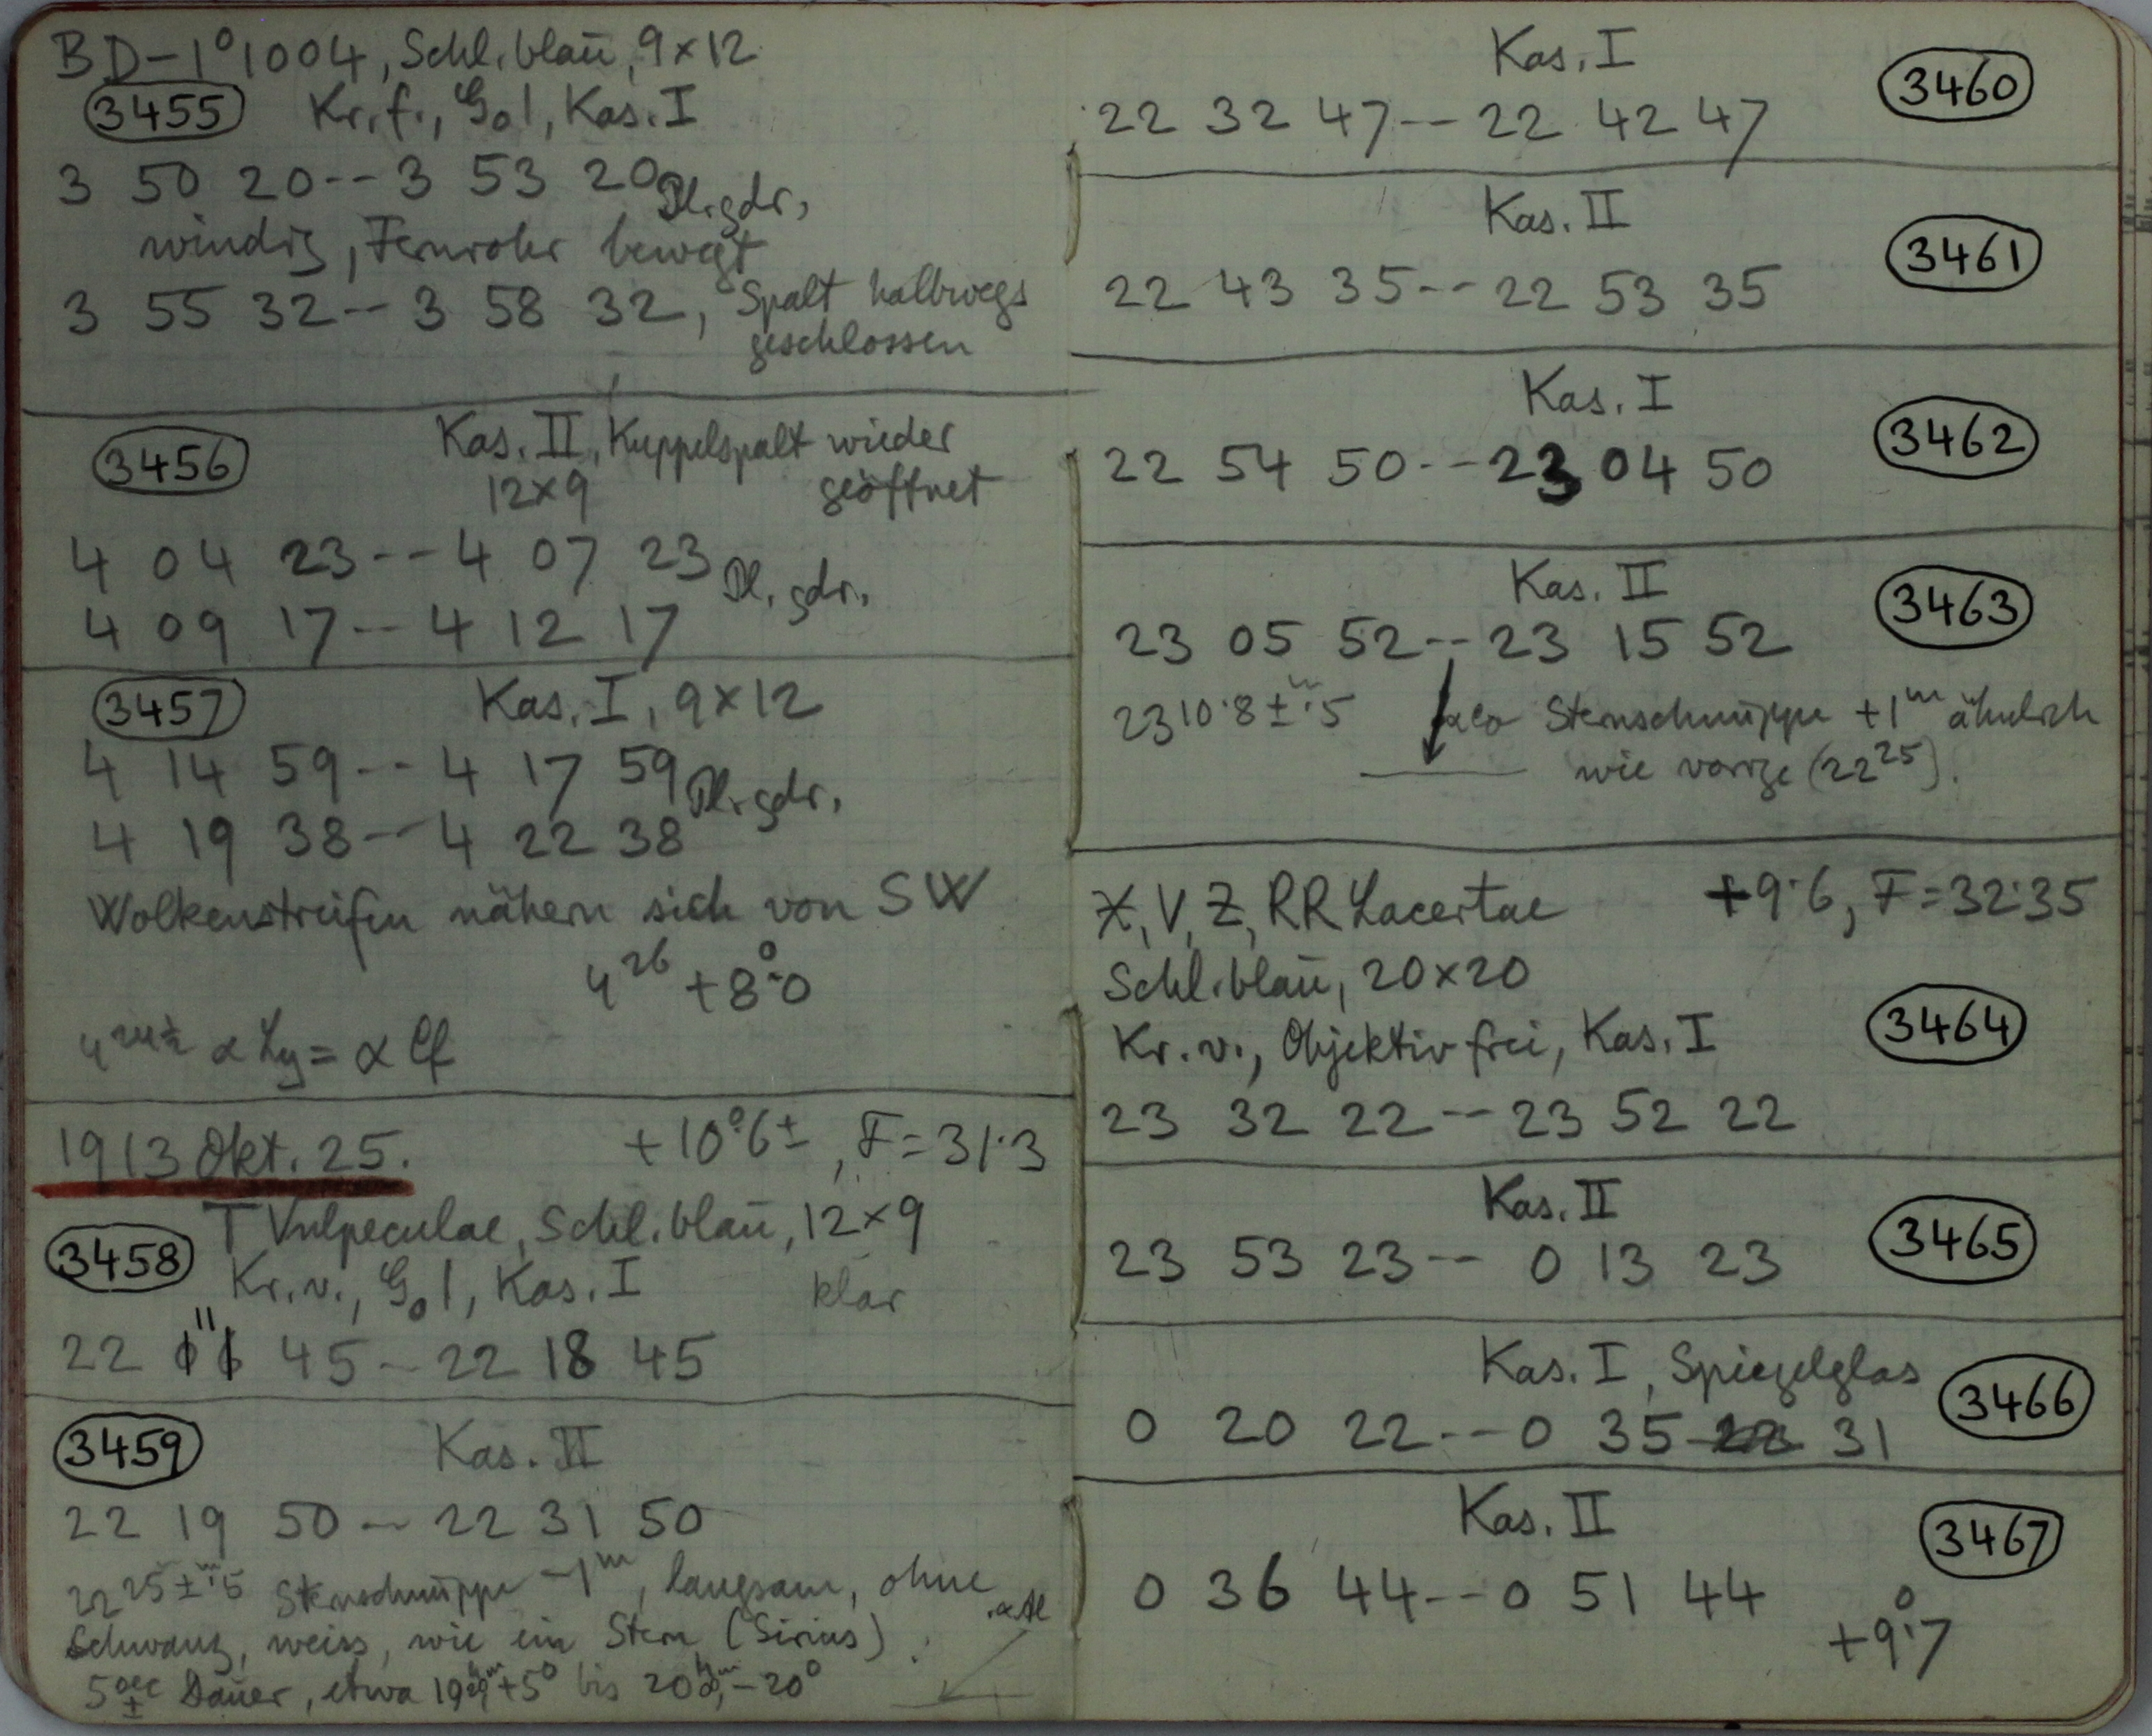 BD-1°1004, Schl. blau, 9×12
3455 Kr. f., G01, Kas. I
3 50 20--3 53 20 Pl. gdr.
windig, Fernrohr bewegt
3 55 32--3 58 32, Spalt halbwegs
geschlossen
3456 Kas. II, Kuppelspalt wieder
12×9 geöffnet
4 04 23--4 07 23 Pl. gdr.
4 09 17--4 12 17
3457 Kas. I, 9×12
4 14 59--4 17 59 Pl. gdr.
4 19 38--4 22 38
Wolkenstreifen nähern sich von SW
4 26 +8°.0
α Ly = α
1913 Okt. 25. +10°.6±, F=31.3
T Vulpeculae, Schl. blau, 12×9
3458 Kr. v., G01, Kas. I klar
22 11 45--22 18 45
3459 Kas. II
22 19 50--22 31 50
22 25 ± m.5 Sternschnuppe -1m, langsam, ohne
Schwanz, weiss, wie ein Stern (Sirius).
5 sec ± Dauer, etwa +5° bis -20°
Kas. I 3460
22 32 47--22 42 47
Kas. II 3461
22 43 35--22 53 35
Kas. I 3462
22 54 50--23 04 50
Kas. II 3463
23 05 52--23 15 52
23 10.8 ± m.5 Sternschnuppe +1m ähnlich
wie vorige (22 25).
X, V, Z, RR Lacertae +9.6, F=32.35
Schl. blau, 20×20
Kr. v., Objektiv frei, Kas. I 3464
23 32 22--23 52 22
Kas. II 3465
23 53 23--0 13 23
Kas. I, Spiegelglas 3466
0 20 22--0 35 31
Kas. II 3467
0 36 44--0 51 44
+9°.7